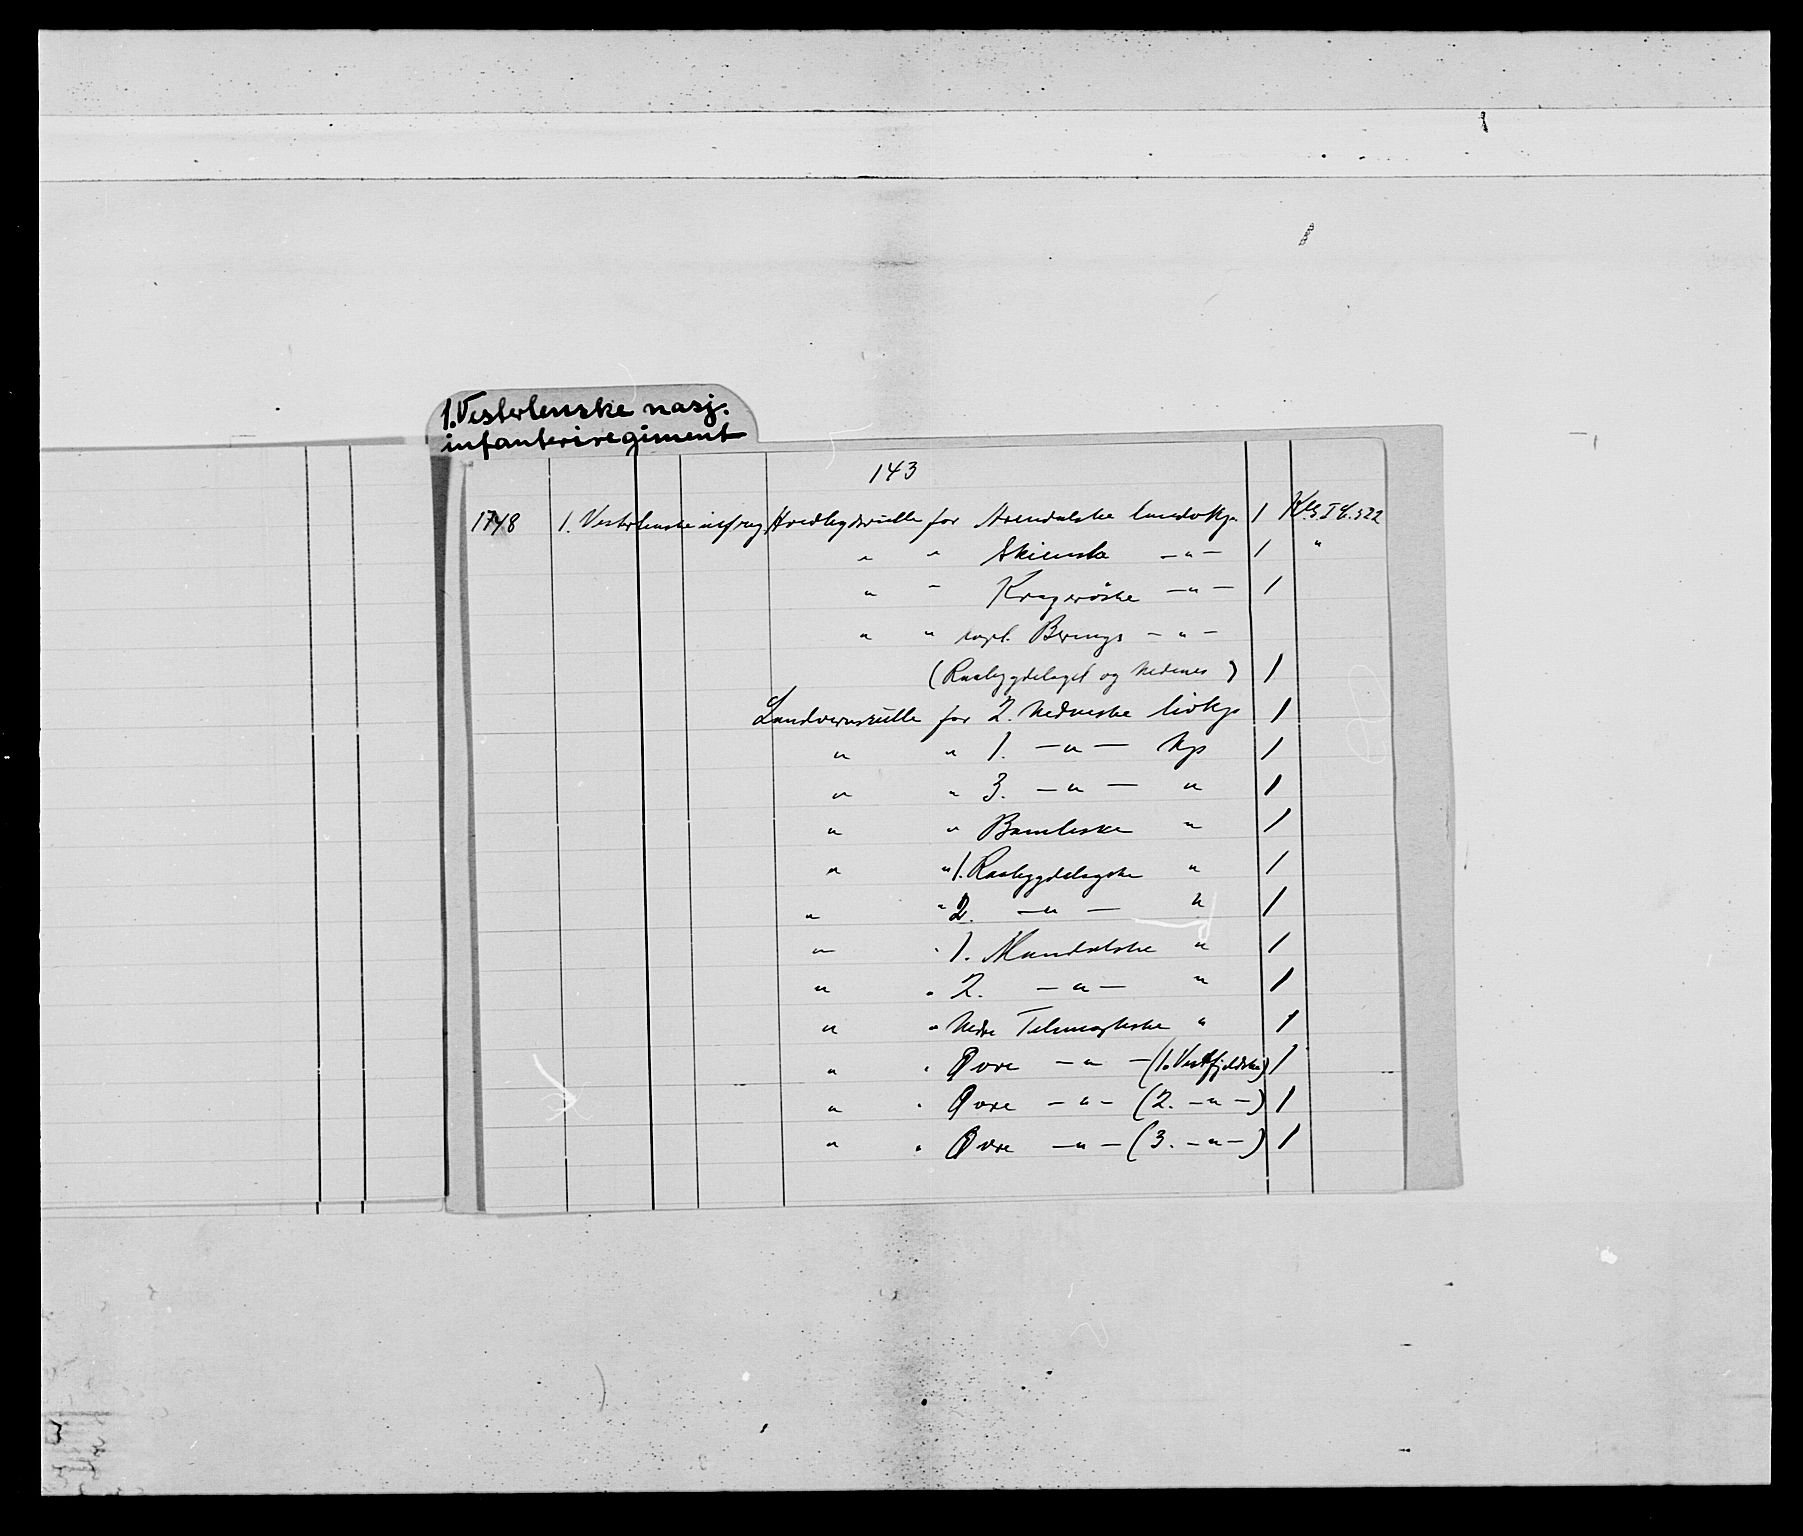 1. Vesterlenske nasj.
infanteriregiment
143
1748 1. Vesterlenske inf reg. Hovedlegdsrulle for Arendalske landvkp. 1
" " Skienske — " — 1 "
" " Kragerøske — " — 1
" " capt. Berings — " —
(Raabygdelaget og Nedenes) 1
Landvernsrulle for 2. Nedneske livkp 1
" " 1. — " — kp 1
" " 3. — " — " 1
" " Bambleske " 1
" " 1. Raabygdelagske " 1
" " 2. — " — " 1
" " 1. Mandalske " 1
" " 2. — " — " 1
" " Nedre Telemarkske " 1
" " Øvre — " — (1. Vestfjeldske) 1
" " Øvre — " — (2. — " —) 1
" " Øvre — " — (3. — " —) 1